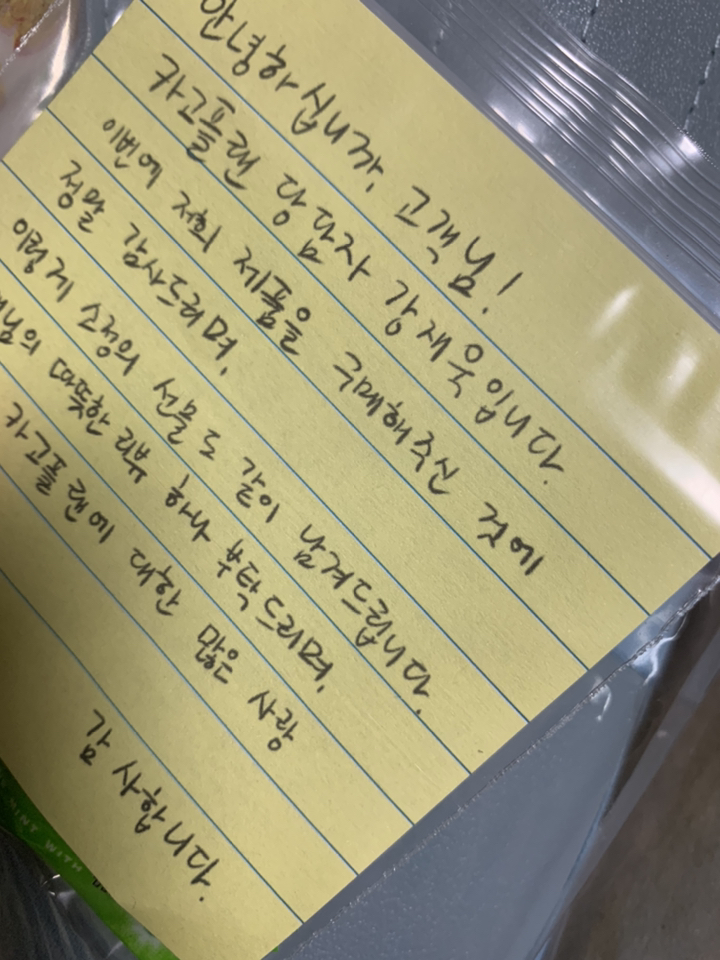 안녕하십니까, 고객님!
카고플랜 담당자 강재욱입니다.
이번에 저희 제품을 구매해주신 것에
정말 감사드리며,
이렇게 소정의 선물도 같이 남겨드립니다.
님의 따뜻한 리뷰 하나 부탁드리며,
카고플랜에 대한 많은 사랑
감사합니다.
MINT WITH